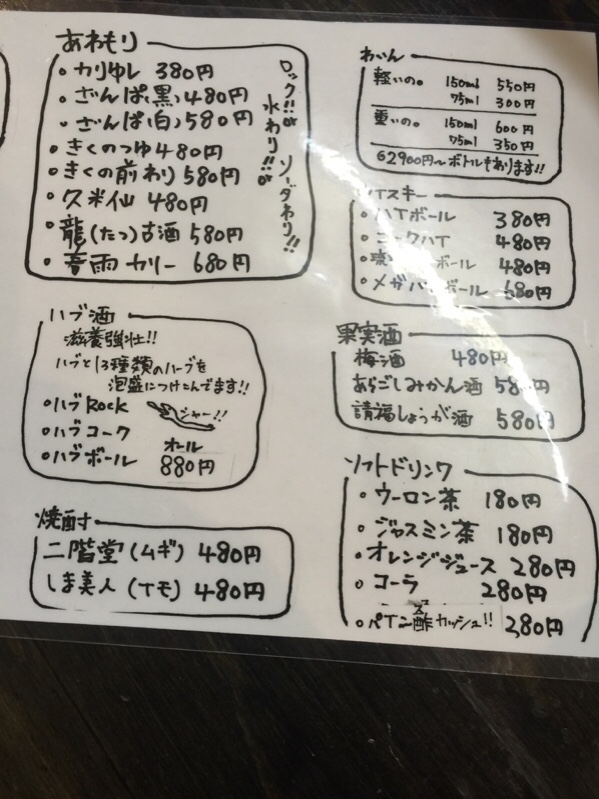 あわもり
・カリゆし 380円
・ざんぱ(黒) 480円
・ざんぱ(白) 580円
・きくのつゆ 480円
・きくの前わり 580円
・久米仙 480円
・龍(たつ)古酒 580円
・春雨カリー 680円
ロック!! or 水わり!! or ソーダわり!!
ハブ酒
滋養強壮!!
ハブと13種類のハーブを
泡盛につけこんでます!!
・ハブRock
ジャー!!
・ハブコーク
・ハブボール
オール
880円
焼酎
二階堂(ムギ) 480円
しま美人(イモ) 480円
わいん
軽いの。 150ml 550円
75ml 300円
重いの。 150ml 600円
75ml 350円
2900円〜ボトルもあります!!
ウイスキー
・ハイボール 380円
・コークハイ 480円
ボール 480円
・メガハイボール 680円
果実酒
梅酒 480円
あらごしみかん酒 580円
請福しょうが酒 580円
ソフトドリンク
・ウーロン茶 180円
・ジャスミン茶 180円
・オレンジジュース 280円
・コーラ 280円
・パイン酢カッシュ!! 280円